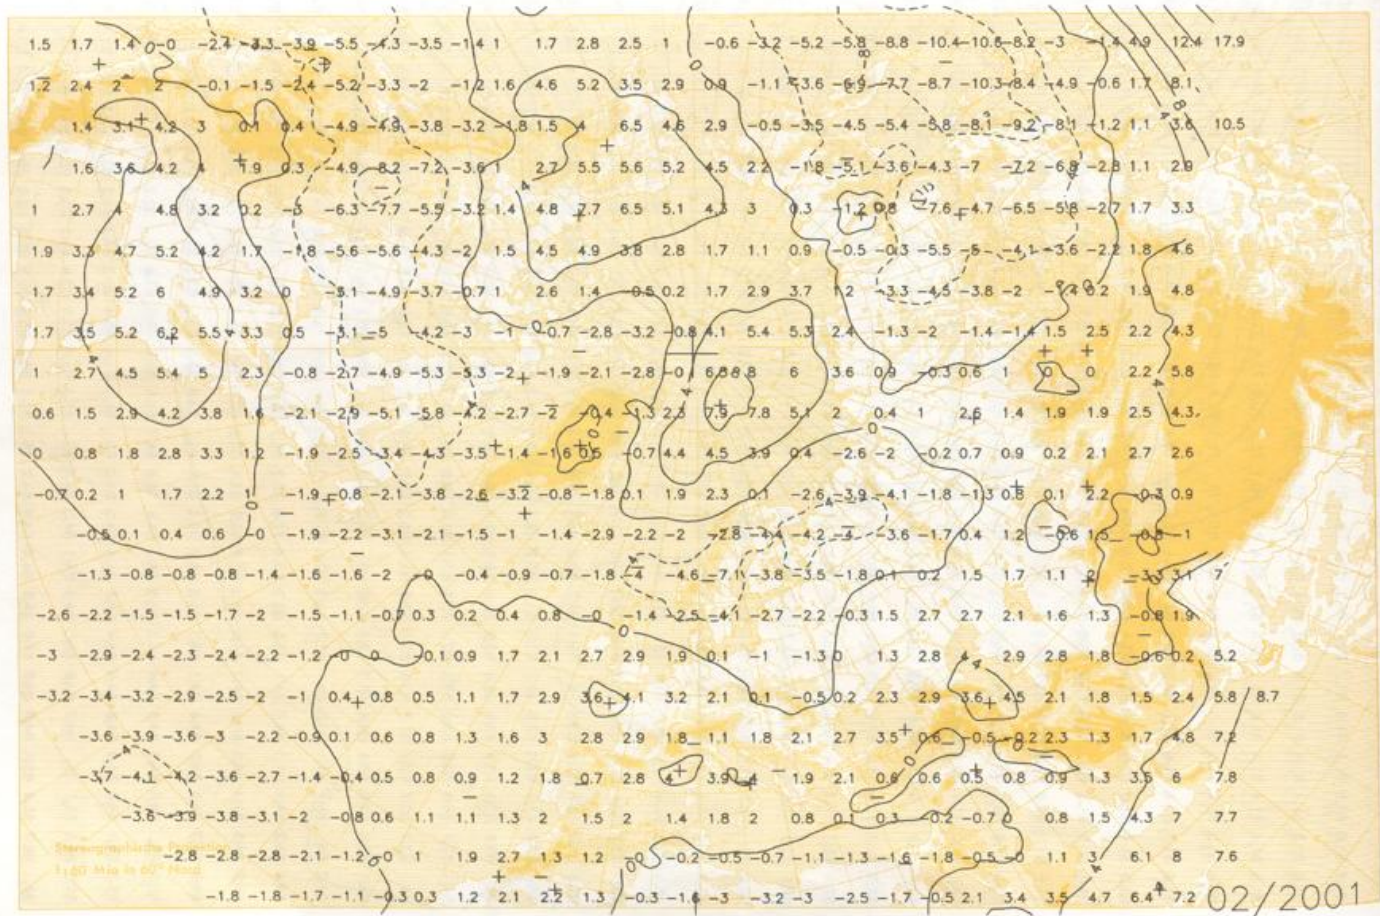 1.5 1.7 1.4 0 -0 -2.4 -3.3 -3.9 -5.5 -4.3 -3.5 -1.4 1 1.7 2.8 2.5 1 -0.6 -3.2 -5.2 -5.8 -8.8 -10.4 -10.6 -8.2 -3 -1.4 4.9 12.4 17.9
1.2 2.4 2 2 -0.1 -1.5 -2.4 -5.2 -3.3 -2 -1.2 1.6 4.6 5.2 3.5 2.9 0.9 -1.1 -3.6 -6.9 -7.7 -8.7 -10.3 -8.4 -4.9 -0.6 1.7 8.1
1.4 3.1 4.2 3 0.1 0.4 -4.9 -4.9 -3.8 -3.2 -1.8 1.5 4 6.5 4.6 2.9 -0.5 -3.5 -4.5 -5.4 -5.8 -8.1 -9.2 -8.1 -1.2 1.1 3.6 10.5
1.6 3.6 4.2 4 1.9 0.3 -4.9 -8.2 -7.2 -3.6 1 2.7 5.5 5.6 5.2 4.5 2.2 -1.8 -5.1 -3.6 -4.3 -7 -7.2 -6.8 -2.8 1.1 2.9
1 2.7 4 4.8 3.2 0.2 -3 -6.3 -7.7 -5.5 -3.2 1.4 4.8 7.7 6.5 5.1 4.3 3 0.3 -1.2 0.8 -7.6 -4.7 -6.5 -5.8 -2.7 1.7 3.3
1.9 3.3 4.7 5.2 4.2 1.7 -1.8 -5.6 -5.6 -4.3 -2 1.5 4.5 4.9 3.8 2.8 1.7 1.1 0.9 -0.5 -0.3 -5.5 -5 -4.1 -3.6 -2.2 1.8 4.6
1.7 3.4 5.2 6 4.9 3.2 0 -5.1 -4.9 -3.7 -0.7 1 2.6 1.4 -0.5 0.2 1.7 2.9 3.7 1.2 -3.3 -4.5 -3.8 -2 0.2 1.9 4.8
1.7 3.5 5.2 6.2 5.5 3.3 0.5 -3.1 -5 -4.2 -3 -1 -0.7 -2.8 -3.2 -0.8 4.1 5.4 5.3 2.4 -1.3 -2 -1.4 -1.4 1.5 2.5 2.2 4.3
1 2.7 4.5 5.4 5 2.3 -0.8 -2.7 -4.9 -5.3 -5.3 -2 -1.9 -2.1 -2.8 8 6 3.6 0.9 -0.3 0.6 1 0 0 2.2 5.8
0.6 1.5 2.9 4.2 3.8 1.6 -2.1 -2.9 -5.1 -5.8 -4.2 -2.7 -2 -0.4 -1.3 2.3 7.9 7.8 5.1 2 0.4 1 2.6 1.4 1.9 1.9 2.5 4.3
0 0.8 1.8 2.8 3.3 1.2 -1.9 -2.5 -3.4 -4.3 -3.5 -1.4 -1.6 0.5 -0.7 4.4 4.5 3.9 0.4 -2.6 -2 -0.2 0.7 0.9 0.2 2.1 2.7 2.6
-0.7 0.2 1 1.7 2.2 1 -1.9 -0.8 -2.1 -3.8 -2.6 -3.2 -0.8 -1.8 0.1 1.9 2.3 0.1 -2.6 -3.9 -4.1 -1.8 -1.3 0.8 0.1 2.2 -0.3 0.9
-0.5 0.1 0.4 0.6 -0 -1.9 -2.2 -3.1 -2.1 -1.5 -1 -1.4 -2.9 -2.2 -2 -2.8 -4.4 -4.2 -4 -3.6 -1.7 0.4 1.2 -0.6 1.5 -0.8 1
-1.3 -0.8 -0.8 -0.8 -1.4 -1.6 -1.6 -2 -0 -0.4 -0.9 -0.7 -1.8 -4 -4.6 -7.1 -3.8 -3.5 -1.8 0.1 0.2 1.5 1.7 1.1 2 -3.3 3.1 7
-2.6 -2.2 -1.5 -1.5 -1.7 -2 -1.5 -1.1 -0.7 0.3 0.2 0.4 0.8 -0 -1.4 -2.5 -4.1 -2.7 -2.2 -0.3 1.5 2.7 2.7 2.1 1.6 1.3 -0.8 1.9
-3 -2.9 -2.4 -2.3 -2.4 -2.2 -1.2 -0 0 -0.1 0.9 1.7 2.1 2.7 2.9 1.9 0.1 -1 -1.3 0 1.3 2.8 4 2.9 2.8 1.8 -0.6 0.2 5.2
-3.2 -3.4 -3.2 -2.9 -2.5 -2 -1 0.4 0.8 0.5 1.1 1.7 2.9 3.6 4.1 3.2 2.1 0.1 -0.5 0.2 2.3 2.9 3.6 4.5 2.1 1.8 1.5 2.4 5.8 8.7
-3.6 -3.9 -3.6 -3 -2.2 -0.9 0.1 0.6 0.8 1.3 1.6 3 2.8 2.9 1.8 1.1 1.8 2.1 2.7 3.5 0.6 -0.5 -0.2 2.3 1.3 1.7 4.8 7.2
-3.7 -4.1 -4.2 -3.6 -2.7 -1.4 -0.4 0.5 0.8 0.9 1.2 1.8 0.7 2.8 4 3.9 4 1.9 2.1 0.6 0.6 0.5 0.8 0.9 1.3 3.5 6 7.8
-3.6 -3.9 -3.8 -3.1 -2 -0.8 0.6 1.1 1.1 1.3 2 1.5 2 1.4 1.8 2 0.8 0.1 0.3 -0.2 -0.7 0 0.8 1.5 4.3 7 7.7
Stereographische Projektion
-2.8 -2.8 -2.8 -2.1 -1.2 -0 1 1.9 2.7 1.3 1.2 -0 -0.2 -0.5 -0.7 -1.1 -1.3 -1.6 -1.8 -0.5 -0 1.1 3 6.1 8 7.6
1:60 Mio in 60° Nord
-1.8 -1.8 -1.7 -1.1 -0.3 0.3 1.2 2.1 2.2 1.3 -0.3 -1.6 -3 -3.2 -3 -2.5 -1.7 -0.5 2.1 3.4 3.5 4.7 6.4 7.2 02/2001